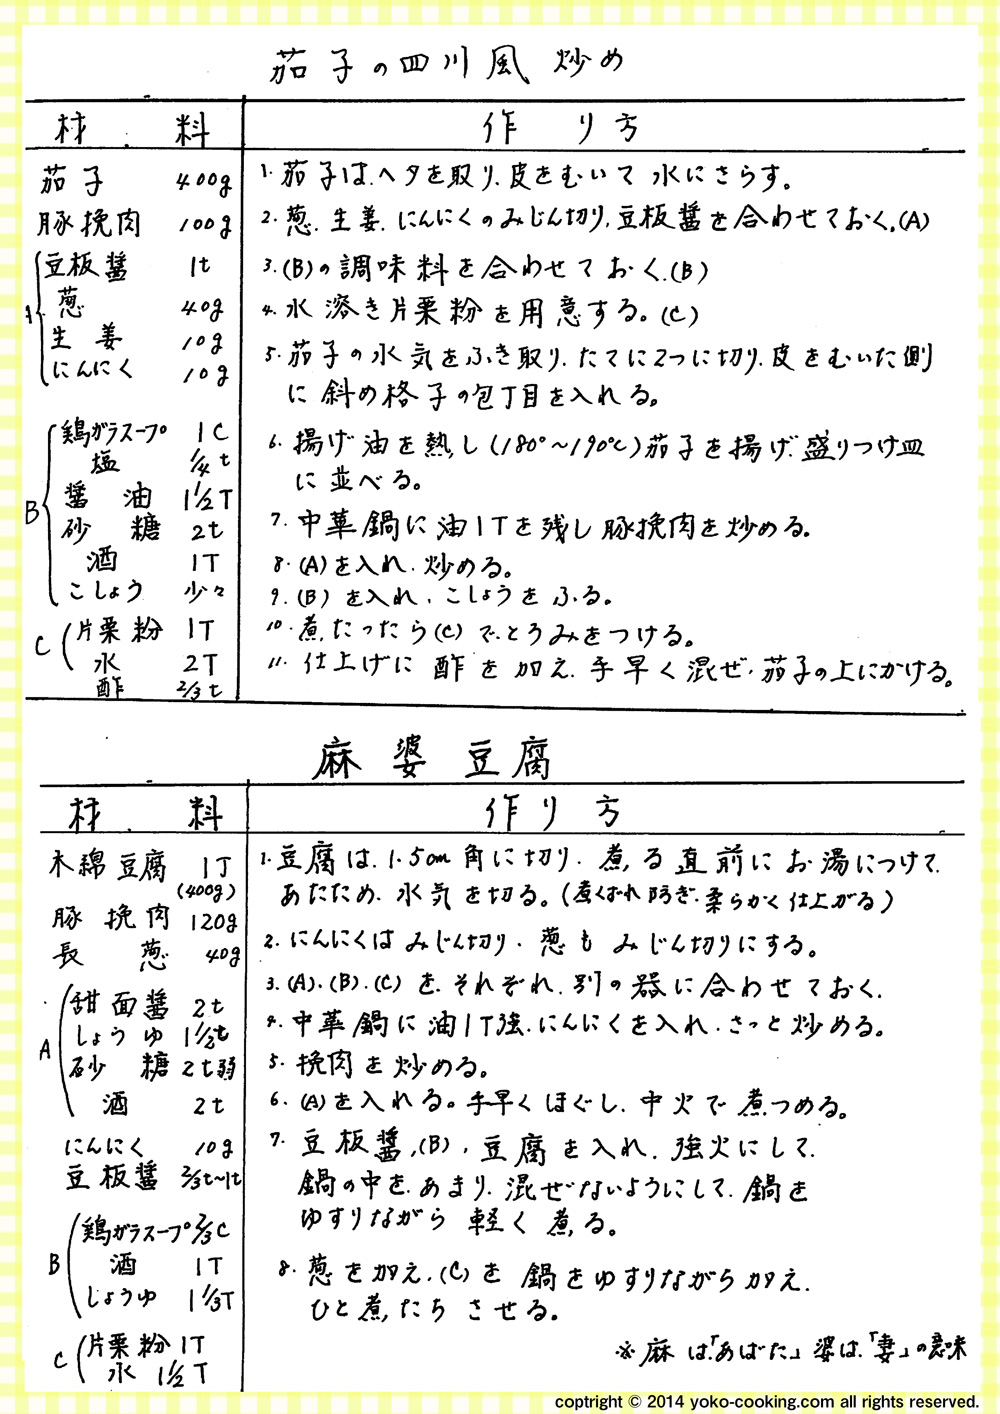 茄子の四川風炒め
材料
作り方
茄子 400g
豚挽肉 100g
A
豆板醤 1t
葱 40g
生姜 10g
にんにく 10g
B
鶏ガラスープ 1C
塩 1/4t
醤油 1 1/2T
砂糖 2t
酒 1T
こしょう 少々
C
片栗粉 1T
水 2T
酢 2/3t
1. 茄子は、ヘタを取り、皮をむいて水にさらす。
2. 葱、生姜、にんにくのみじん切り、豆板醤を合わせておく。(A)
3. (B)の調味料を合わせておく。(B)
4. 水溶き片栗粉を用意する。(C)
5. 茄子の水気をふき取り、たてに2つに切り、皮をむいた側
に斜め格子の包丁目を入れる。
6. 揚げ油を熱し(180°〜190℃)茄子を揚げ、盛りつけ皿
に並べる。
7. 中華鍋に油1Tを残し豚挽肉を炒める。
8. (A)を入れ、炒める。
9. (B)を入れ、こしょうをふる。
10. 煮たったら(C)で、とろみをつける。
11. 仕上げに酢を加え、手早く混ぜ、茄子の上にかける。
麻婆豆腐
材料
作り方
木綿豆腐 1丁
(400g)
豚挽肉 120g
長葱 40g
A
甜面醤 2t
しょうゆ 1 1/2t
砂糖 2t弱
酒 2t
にんにく 10g
豆板醤 2/3t〜1t
B
鶏ガラスープ 2/3C
酒 1T
しょうゆ 1 1/3T
C
片栗粉 1T
水 1 1/2T
1. 豆腐は、1.5cm角に切り、煮る直前にお湯につけて、
あたため、水気を切る。(煮くずれ防ぎ、柔らかく仕上がる)
2. にんにくはみじん切り、葱もみじん切りにする。
3. (A)、(B)、(C)を、それぞれ、別の器に合わせておく、
4. 中華鍋に油1T強、にんにくを入れ、さっと炒める。
5. 挽肉を炒める。
6. (A)を入れる。手早くほぐし、中火で煮つめる。
7. 豆板醤、(B)、豆腐を入れ、強火にして、
鍋の中を、あまり、混ぜないようにして、鍋を
ゆすりながら軽く煮る。
8. 葱を加え、(C)を鍋をゆすりながら加え、
ひと煮たちさせる。
※麻は、「あばた」婆は、「妻」の意味
copyright © 2014 yoko-cooking.com all rights reserved.